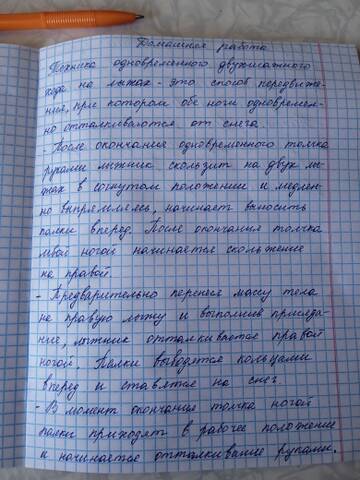 Домашняя работа
Техника одновременного двухшажного
хода на лыжах - это способ передвиже-
ния, при котором обе ноги одновремен-
но отталкиваются от снега.
После окончание одновременного толчка
руками лыжник скользит на двух лы-
жах в согнутом положении и медлен-
но выпрямляясь, начинает выносить
палки вперед. После окончания толчка
левой ногой начинается скольжение
на правой.
- Предварительно перенеся массу тела
на правую лыжу и выполнив приседа-
ние, лыжник отталкивается правой
ногой. Палки выводятся кольцами
вперед и ставятся на снег.
- В момент окончания толчка ногой
палки приходят в рабочее положение
и начинается отталкивание руками.